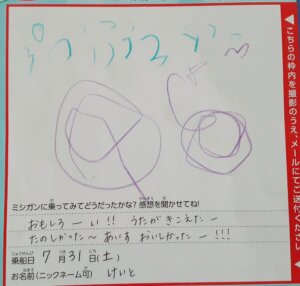 ミシガンに乗ってみてどうだったかな? 感想を聞かせてね!
おもしろーい!! うたがきこえたー
たのしかった〜 あいす おいしかったー!!!
乗船日 7月31日(土)
お名前(ニックネーム可) けいと
◀こちらの枠内を撮影のうえ、メールにてご送付ください